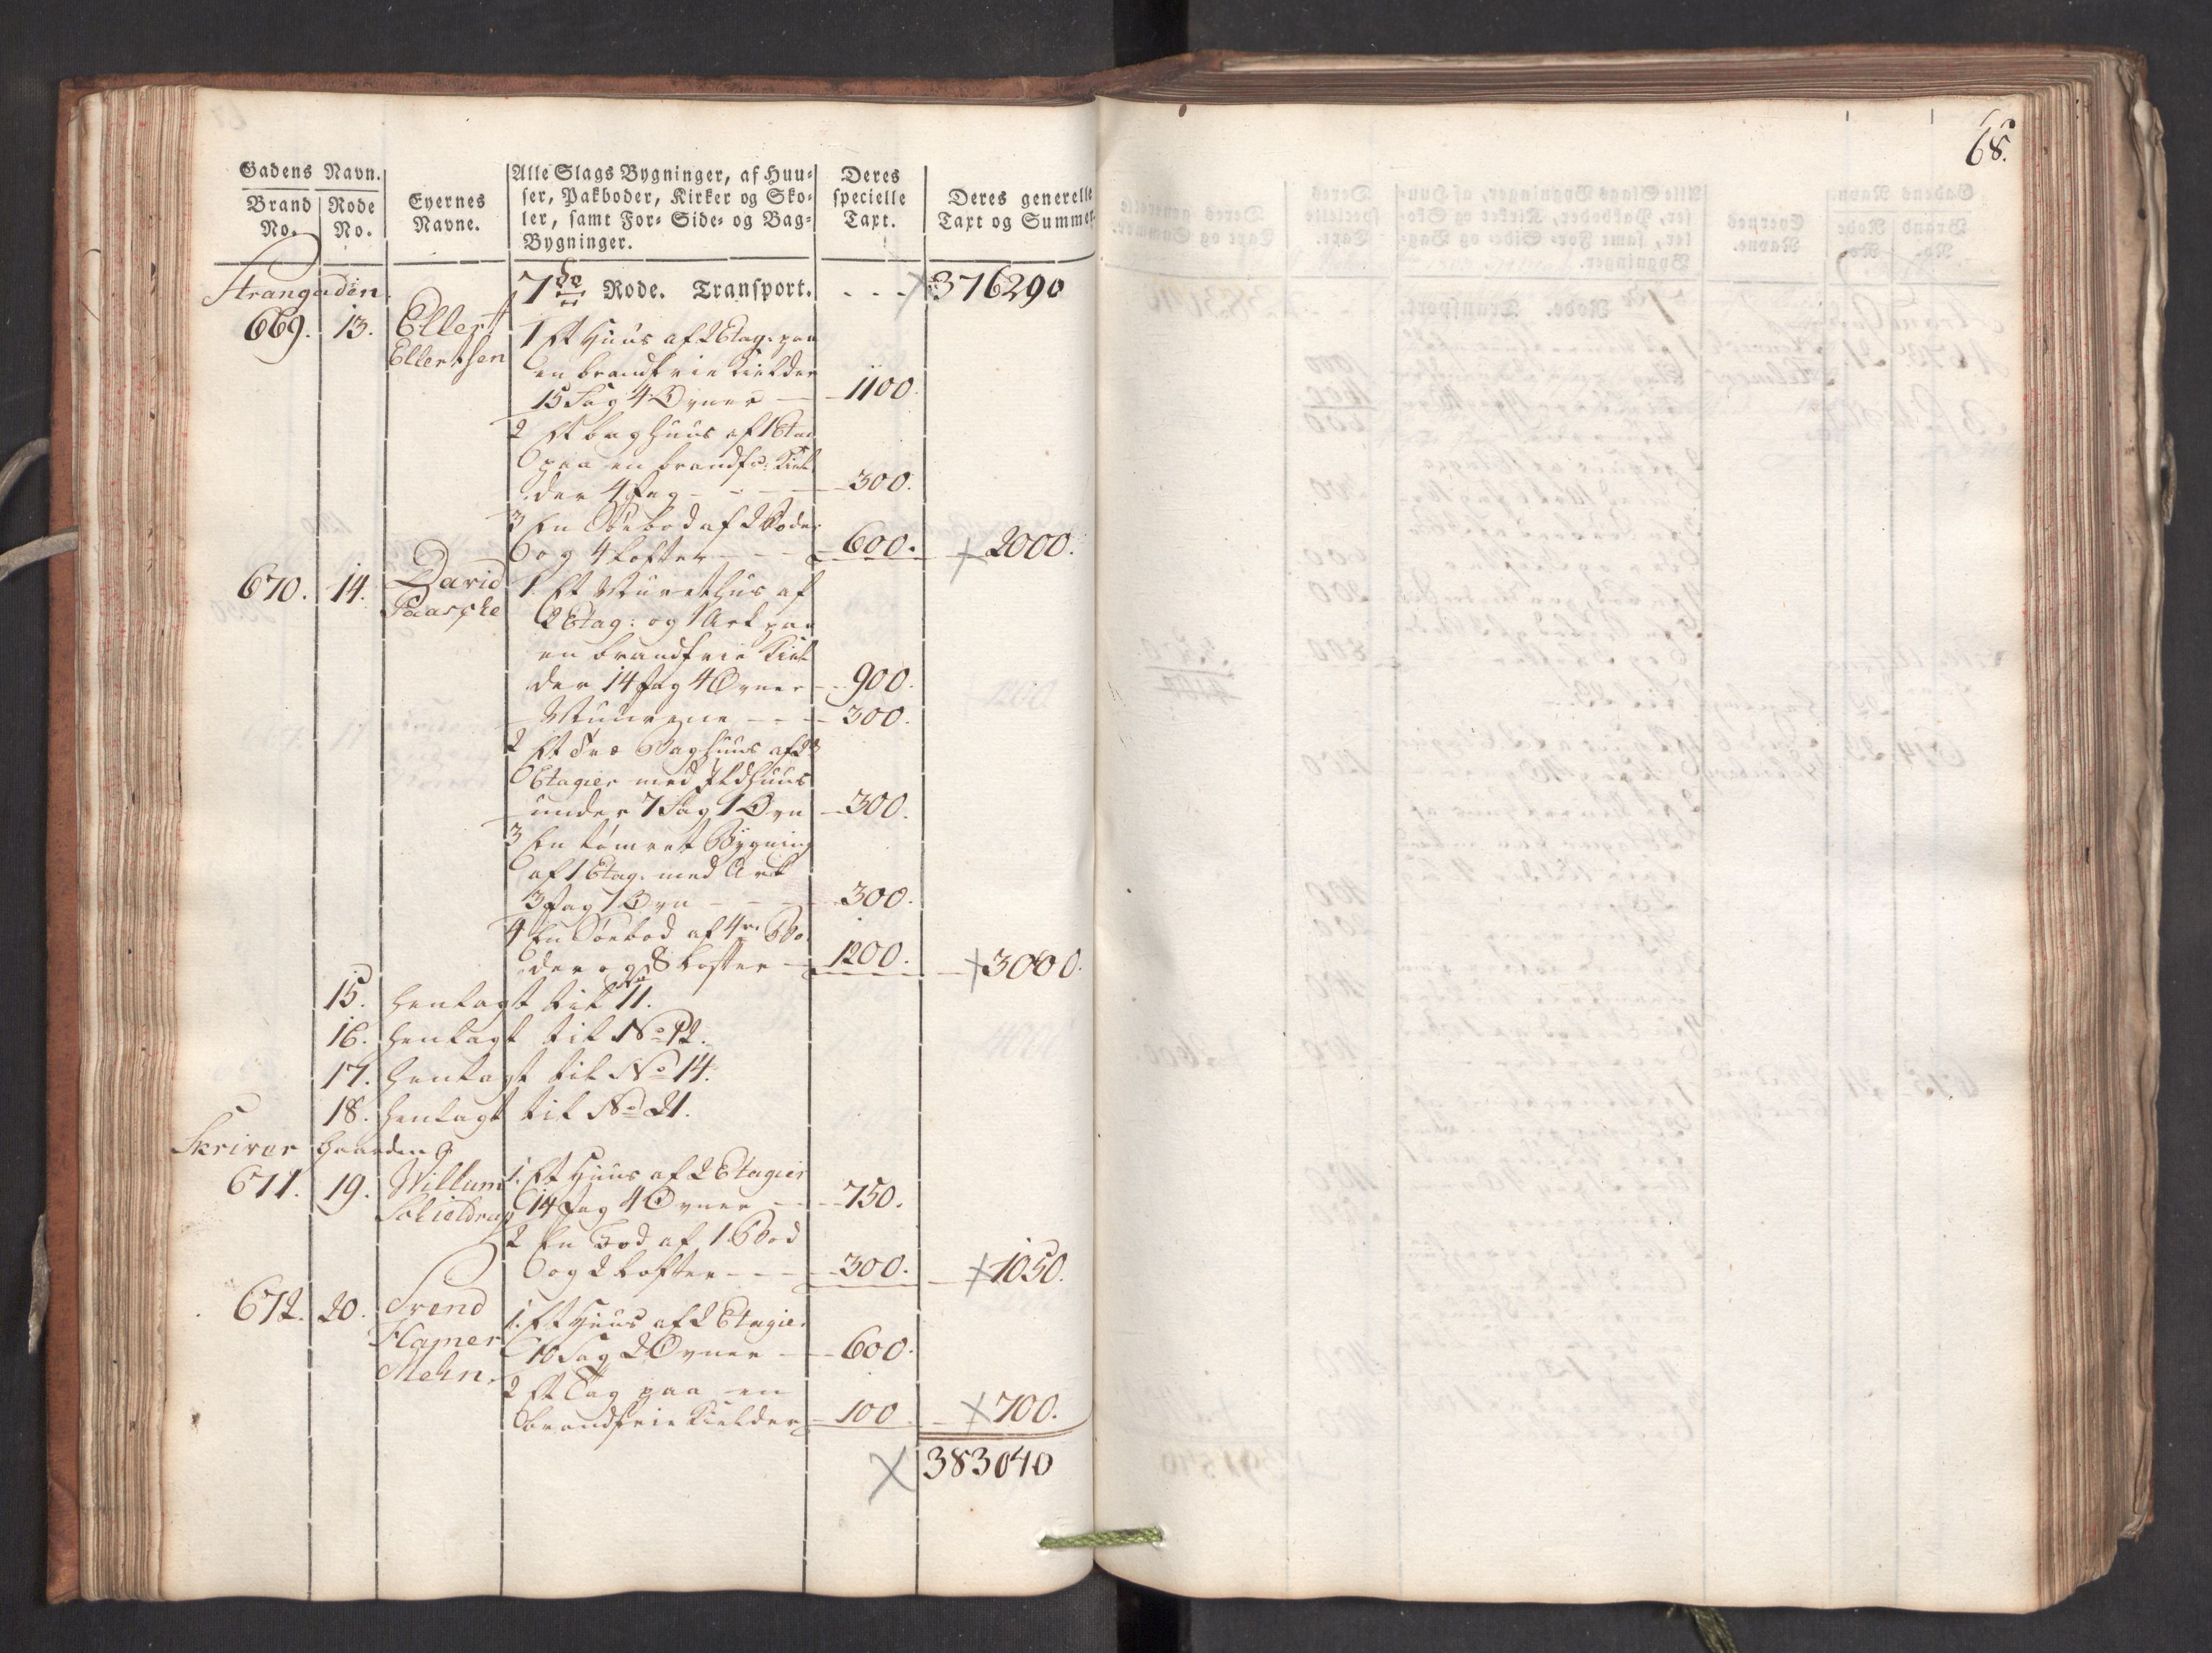 68.
Gadens Navn.
Brand No.
Rode No.
Eyernes Navne.
Alle Slags Bygninger, af Huu-
ser, Pakboder, Kirker og Sko-
ler, samt For- Side- og Bag-
Bygninger.
Deres
specielle
Taxt.
Deres generelle
Taxt og Summer.
Strangaden.
7de Rode. Transport. - - - 376290
669. 13. Ellert
Ellertsen
1 Et Huus af 2 Etag. paa
en brandfrie Kielder
15 Fag 4 Ovner - 1100.
2 Et baghuus af 1 Etag
paa en brandfri Kiel
der 4 Fag - - - 300.
3 En Søebod af 2 Boder
og 4 Lofter - - - 600. 2000.
670. 14. David
Paaske
1. Et Muret hus af
2 Etag: og 1 Ark paa
en brandfrie Kiel
der 14 fag 4 Ovner - 900.
Muurene - - - 300.
2 Et Træ Baghuus af 2
Etagier med Ildhuus
under 7 Fag 1 Ovn - 300.
3 En tømret Bygning
af 1 Etag. med Ark
3 fag 1 Ovn - - - 300.
4 En Søebod af 4re Bo
der og 8 Lofter - 1200. 3000.
15. henlagt til No 11.
16. henlagt til No 12.
17. henlagt til No 14.
18. henlagt til No 21.
Skriver Gaarden
671. 19. Willum
Schieldrup
1. Et Huus af 2 Etagier
14 fag 4 Ovner - - 750.
2 En Bod af 1 Bod
og 2 Lofter - - - 300. 1050.
672. 20. Svend
Hamer
Mehn.
1. Et Huus af 2 Etagier
10 Fag 2 Ovner - 600.
2 Et Tag paa en
brandfrie Kielder - 100. 700.
383040